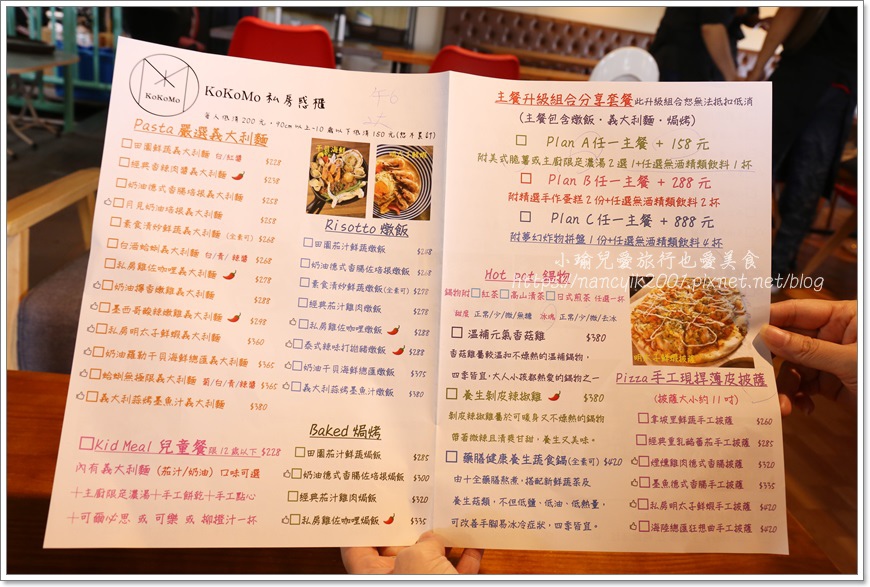 KoKoMo
KoKoMo 私房惑櫃
每人低消200元，90cm以上-10歲以下低消150元(恕不並計)
Pasta 嚴選義大利麵
田園鮮蔬義大利麵 白/紅醬 $228
經典香辣肉醬義大利麵 $238
奶油德式香腸培根義大利麵 $258
月見奶油培根義大利麵 $258
素食清炒鮮蔬義大利麵(全素可) $268
白酒蛤蜊義大利麵 白/青/辣醬 $268
私房雞佐咖哩義大利麵
奶油燻香雞義大利麵 $288
墨西哥酸辣嫩雞義大利麵 $298
私房明太子鮮蝦義大利麵 $360
奶油蘿勒干貝海鮮總匯義大利麵 $365
蛤蜊無極限義大利麵 蒜/白/青/辣醬 $365
義大利蒜烤墨魚汁義大利麵 $380
Kid Meal 兒童餐 限12歲以下 $228
內有義大利麵 (茄汁/奶油) 口味可選
＋主廚限定濃湯＋手工餅乾＋手工點心
＋可爾必思 或 可樂 或 柳橙汁一杯
Risotto 燉飯
田園茄汁鮮蔬燉飯 $248
奶油德式香腸佐培根燉飯 $268
素食清炒野蔬燉飯(全素可) $270
經典茄汁雞肉燉飯 $278
私房雞佐咖哩燉飯 $288
泰式辣味打拋豬燉飯 $288
奶油干貝海鮮總匯燉飯 $375
義大利蒜烤墨魚汁燉飯 $380
Baked 焗烤
田園茄汁鮮蔬焗飯 $285
奶油德式香腸佐培根焗飯 $300
經典茄汁雞肉焗飯 $320
私房雞佐咖哩焗飯 $335
主餐升級組合分享套餐 此升級組合恕無法抵扣低消
(主餐包含燉飯・義大利麵・焗烤)
Plan A任一主餐 + 158 元
附美式脆薯或主廚限定濃湯2選1+任選無酒精類飲料 1杯
Plan B任一主餐 + 288 元
附精選手作蛋糕2份+任選無酒精類飲料 2 杯
Plan C任一主餐 + 888 元
附夢幻炸物拼盤 1份+任選無酒精類飲料 4 杯
小瑜兒愛旅行也愛美食
https://nancylk2007.pixnet.net/blog
Hot pot 鍋物
鍋物附 紅茶 高山清茶 日式煎茶 任選一杯
甜度 正常/少/微/無糖 冰塊 正常/少/微/去冰
溫補元氣香菇雞 $380
香菇雞屬較溫和不燥熱的溫補鍋物，
四季皆宜，大人小孩都熱愛的鍋物之一
養生剝皮辣椒雞 $380
剝皮辣椒雞屬於可暖身又不燥熱的鍋物
帶著微辣且清爽甘甜，養生又美味。
藥膳健康養生蔬食鍋(全素可) $420
由十全藥膳熬煮，搭配新鮮蔬菜及
養生菇類，不但低鹽、低油、低熱量，
可改善手腳易冰冷症狀，四季皆宜。
明太子鮮蝦披薩
Pizza 手工現捍薄皮披薩
(披薩大小約 11吋)
拿坡里鮮蔬手工披薩 $260
經典里乳鹹番茄手工披薩 $285
煙燻雞肉德式香腸手工披薩 $320
墨魚德式香腸手工披薩 $335
私房明太子鮮蝦手工披薩 $420
海陸總匯狂想曲手工披薩 $420